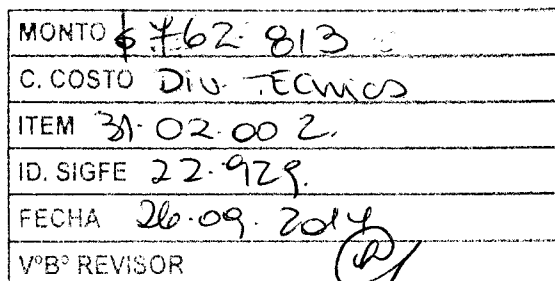 MONTO $ 762.813
C. COSTO Div. TECNICO
ITEM 31.02.00 2.
ID. SIGFE 22.929.
FECHA 26.09.2014
VºBº REVISOR